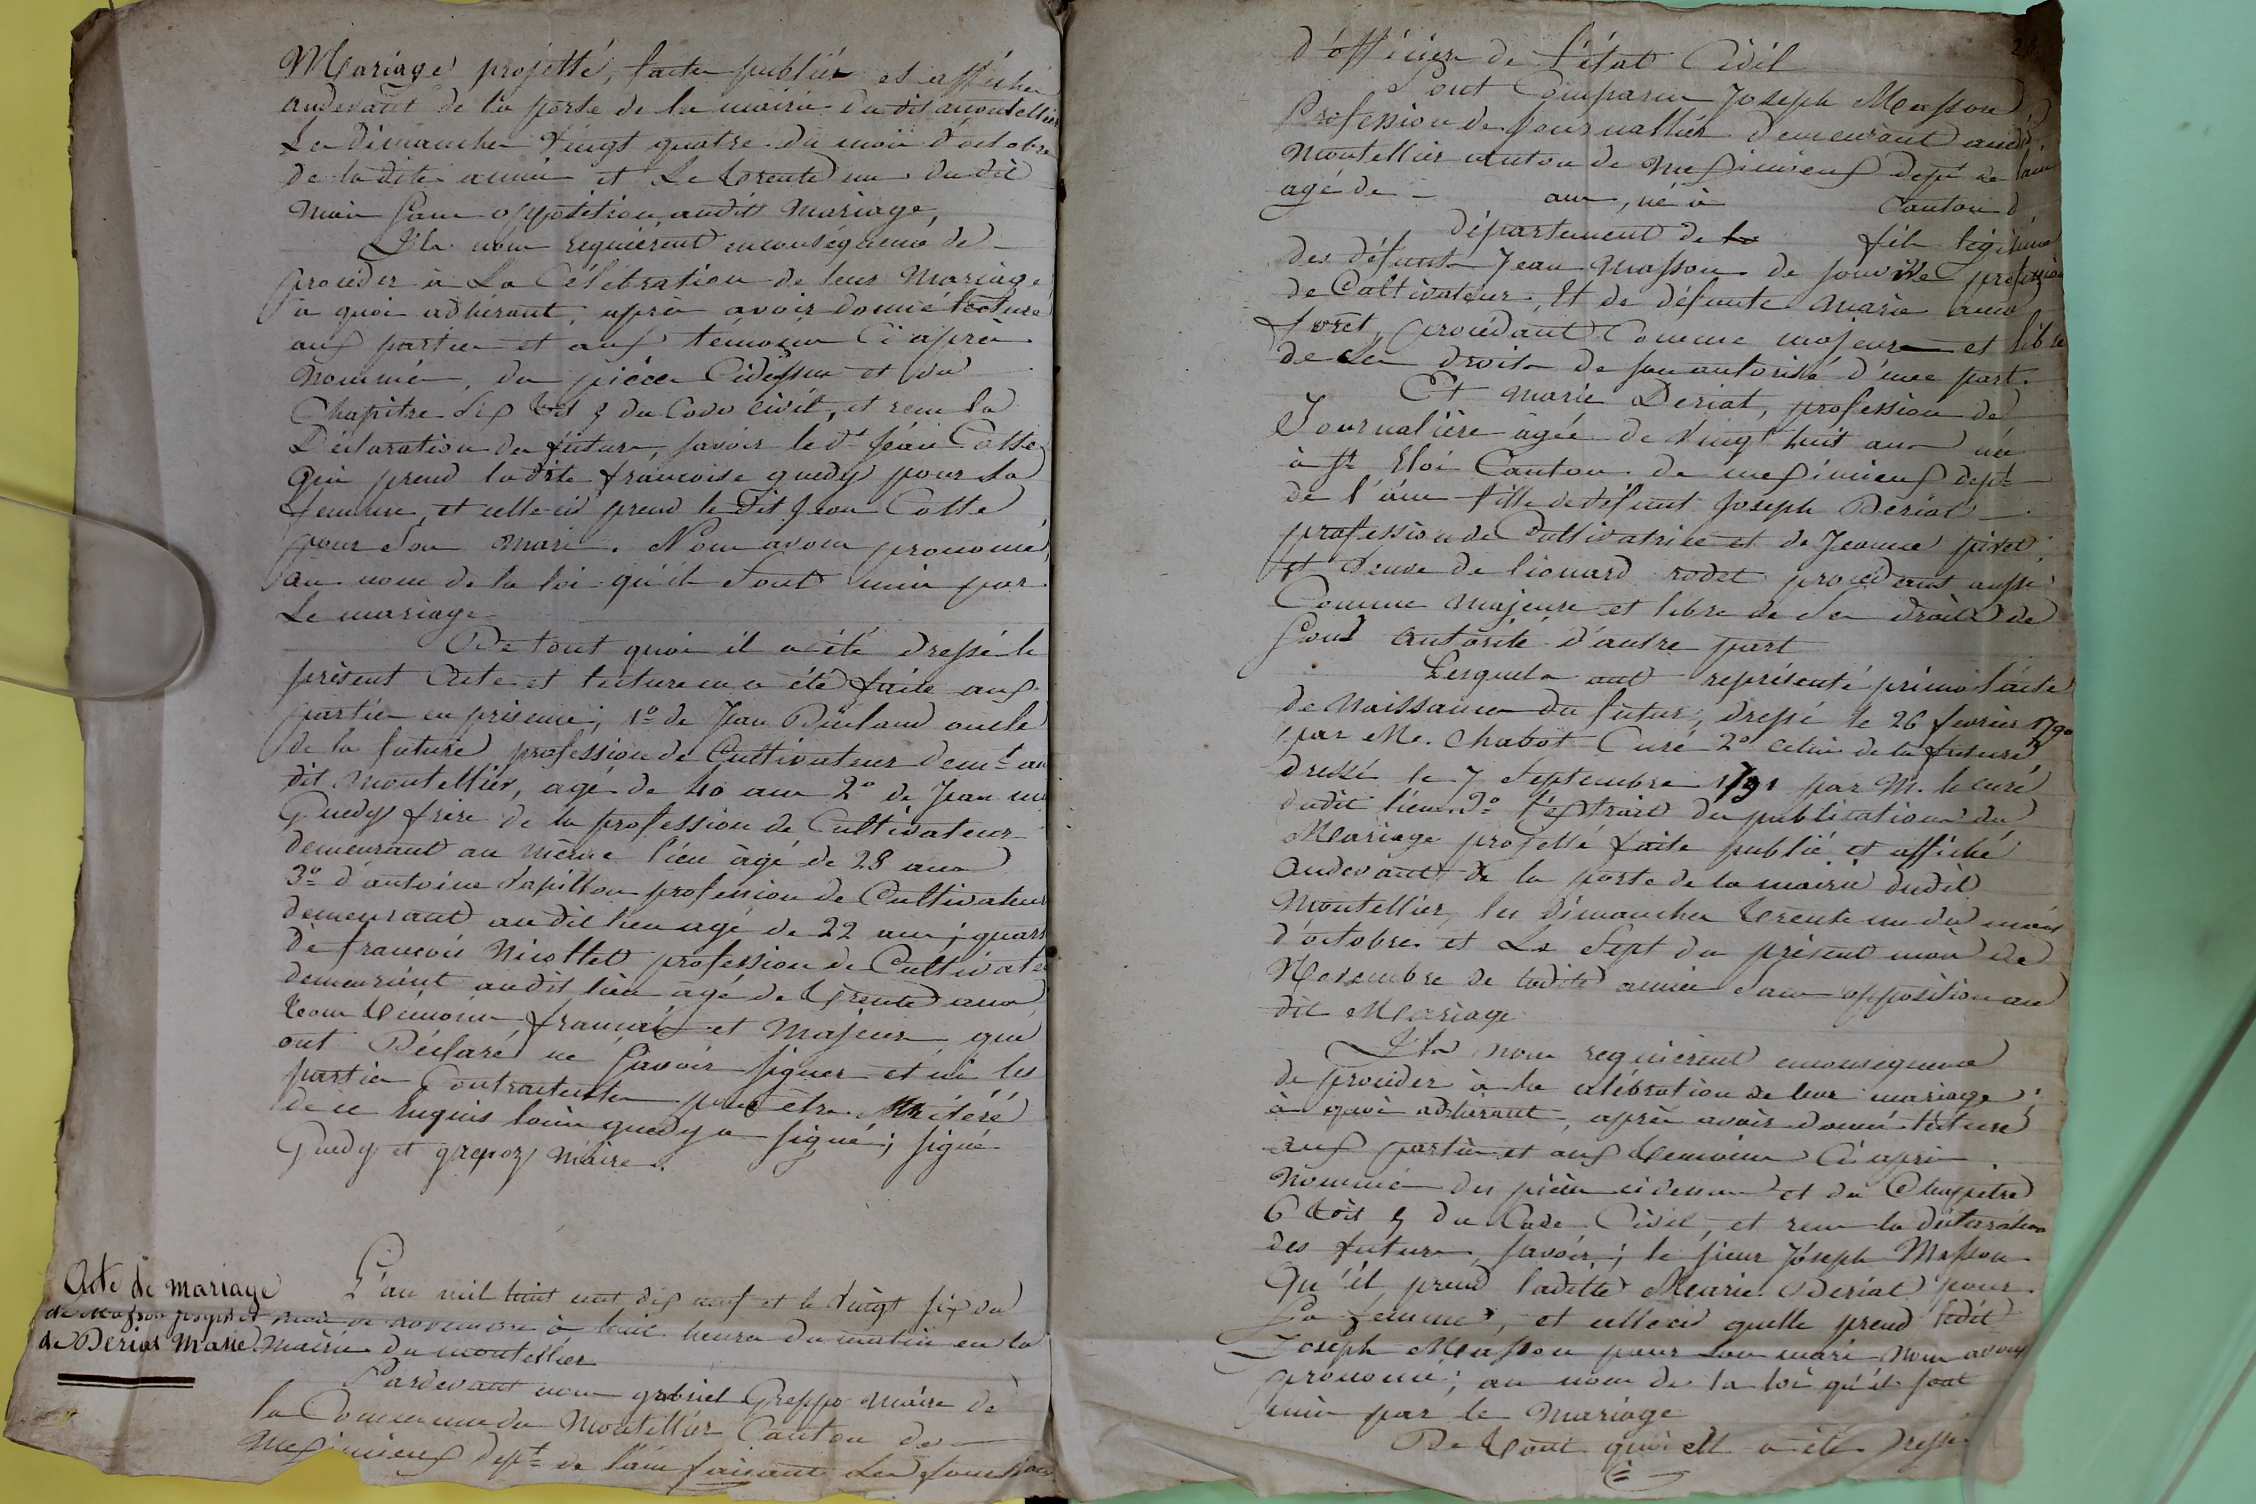 Mariage projetté, faite publiér et affiché
audevant de la porte de la mairie du dit montellier
Les dimanches vingt quatre du mois d'octobre
de la dite année et le trente un du dit
mois sans opposition audit Mariage,
Ils nous requiérent enconséquence de
procéder à la Célébration de leur Mariage
à quoi adhérant, après avoir donné lecture
aux parties et aux témoins Ci après
nommés, des pièces Cidessus et du
Chapitre six tit 5 du Code civil, et reçu la
Déclaration des futurs, savoir le dt Jean Cotte
qui prend ladite francoise guedy pour sa
femme, et celle ci prend le dit Jean Cotte
pour son mari. Nous avons prononcé,
au nom de la loi qu'ils sont unis par
le mariage
De tout quoi il a été dressé le
présent acte et lecture en a été faite aux
parties en présence; 1o de Jean oncle
de la future profession de Cultivateur demt au
dit Montellier, agé de 40 ans 2o de Jean
Guedy frère de la profession de Cultivateur
demeurant au même lieu âgé de 28 ans
3o d'antoine Papillon profession de Cultivateur
demeurant au dit lieu agé de 22 ans; quart
de françois Nicollet profession de Cultivateur
demeurant audit lieu âgé de trente ans
tous témoins français et Majeurs qui
ont Déclaré ne savoir signer et ni les
parties Contractantes pour être
de ce Enquis louis guedy a signé; signé
Guedy et grepoz Maire.
Acte de mariage
de Masson Joseph et
de Deriat Marie
L'an mil huit cent dix neuf et le vingt six du
mois de novembre à huit heures du matin en la
Mairie du montellier
Pardevant nous gabriel Greppo Maire de
la Commune du Montellier Canton de
Meximieux dept de l'ain faisant les fonctions
d'officier de l'état Civil
Sont Comparus Joseph Masson
Profession de Journallier demeurant audit
Montellier canton de Meximieux dept de l'ain
agé de ans, né à Canton d
département de la fils légitime
des défunts Jean Masson de profession
de Cultivateur, Et de défunte Marie
procédant Comme majeur et libre
de ses droits de son autorisé d'une part.
Et Marie Deriat, profession de
Journalière âgée de vingt huit ans née
à St Eloi Canton de meximieux dept
de l'ain fille de défunt Joseph Deriat
profession de Cultivatrice et de Jeanne pivet
et veuve de lionard rodet procédant aussi
Comme majeure et libre de ses droits de
son autorité d'autre part
Lesquels ont représenté primo l'acte
de Naissance du futur, dressé le 26 fevrier 1790
par Me. Chabot Curé 2o celui de la future
dressé le 7 septembre 1791 par M. le curé
dudit lieu. 3o l'extrait des publications du
Mariage projetté faite publié et affiché
audevant de la porte de la mairie dudit
Montellier, les Dimanches trente un du mois
d'octobre et Le Sept du présent mois de
Novembre de ladite année sans opposition au
dit Mariage
Ils nous requièrent enconsequence
de procéder à la célébration de leur mariage;
à quoi adhérant, après avoir donné lecture
aux parties et aux témoins Ci après
Nommés des pièces cidessus et du Chapitre
6 tit 5 du Code Civil, et reçu la déclaration
des futurs savoir; le sieur Joseph Masson
Qu'il prend ladette Marie Deriat pour
Sa femme, et celleci quelle prend ledit
Joseph Masson pour son mari Nous avons
prononcé; au nom de la loi qu'ils sont
unis par le Mariage
De tout quoi ell a été dressé